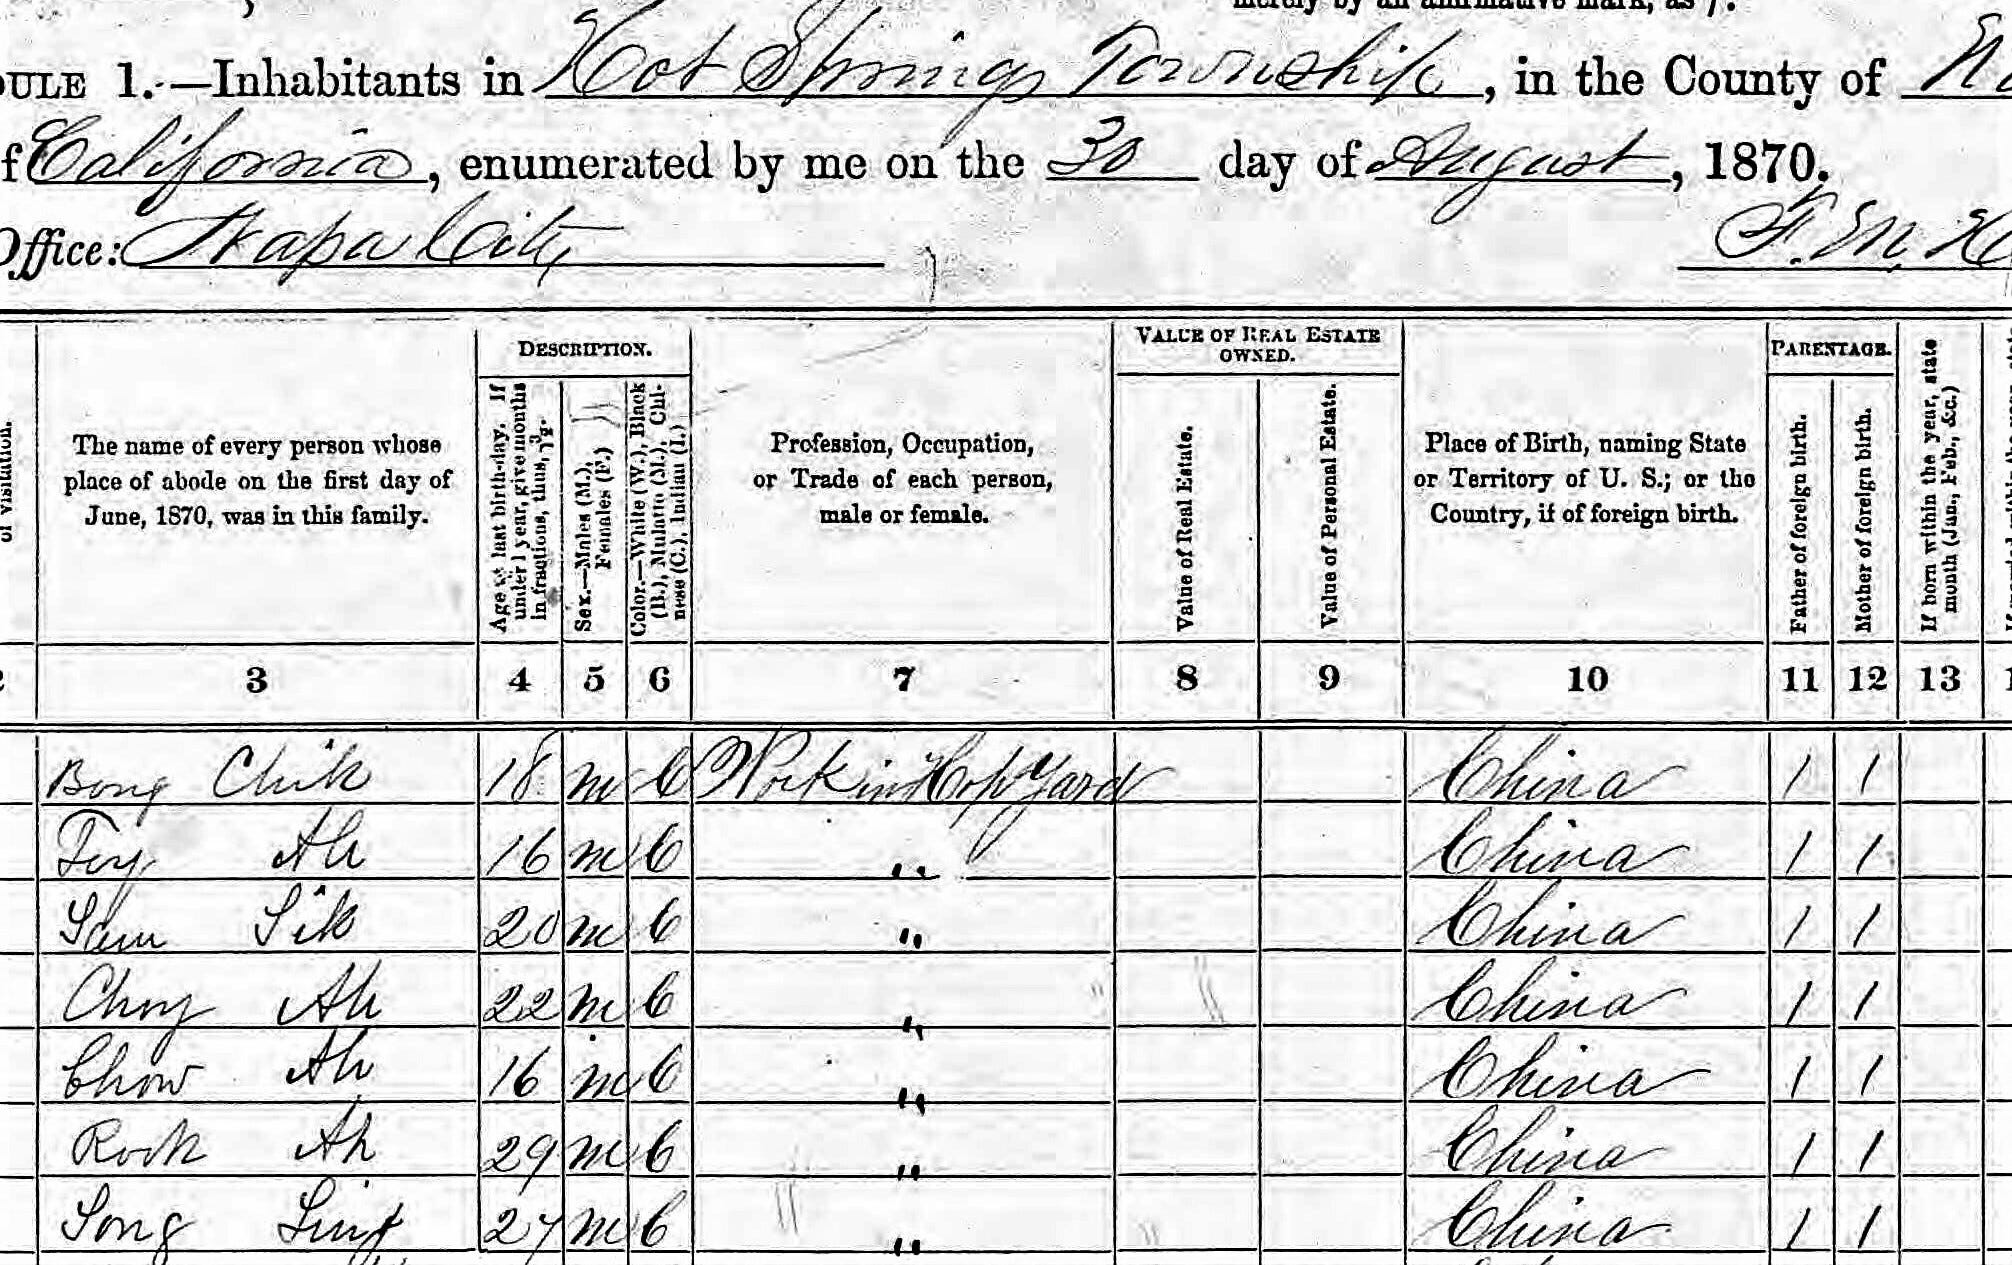 merely by an affirmative mark, as /.
DULE 1.—Inhabitants in Hot Springs Township, in the County of
f California, enumerated by me on the 30 day of August, 1870.
Office: Napa City
F. M.
DESCRIPTION.
VALUE OF REAL ESTATE OWNED.
PARENTAGE.
of visitation.
The name of every person whose
place of abode on the first day of
June, 1870, was in this family.
Age at last birth-day. If
under 1 year, give months
in fractions, thus, 3/12.
Sex.—Males (M.),
Females (F.)
Color.—White (W.), Black
(B.), Mulatto (M.), Chi-
nese (C.), Indian (I.)
Profession, Occupation,
or Trade of each person,
male or female.
Value of Real Estate.
Value of Personal Estate.
Place of Birth, naming State
or Territory of U. S.; or the
Country, if of foreign birth.
Father of foreign birth.
Mother of foreign birth.
If born within the year, state
month (Jan., Feb., &c.)
3 4 5 6 7 8 9 10 11 12 13
Bong Chik 18 m C Work in Hop Yard China / /
Ah 16 m C " China / /
Sam Sik 20 m C " China / /
Choy Ah 22 m C " China / /
Chow Ah 16 m C " China / /
Rook Ah 29 m C " China / /
Song Ling 27 m C " China / /